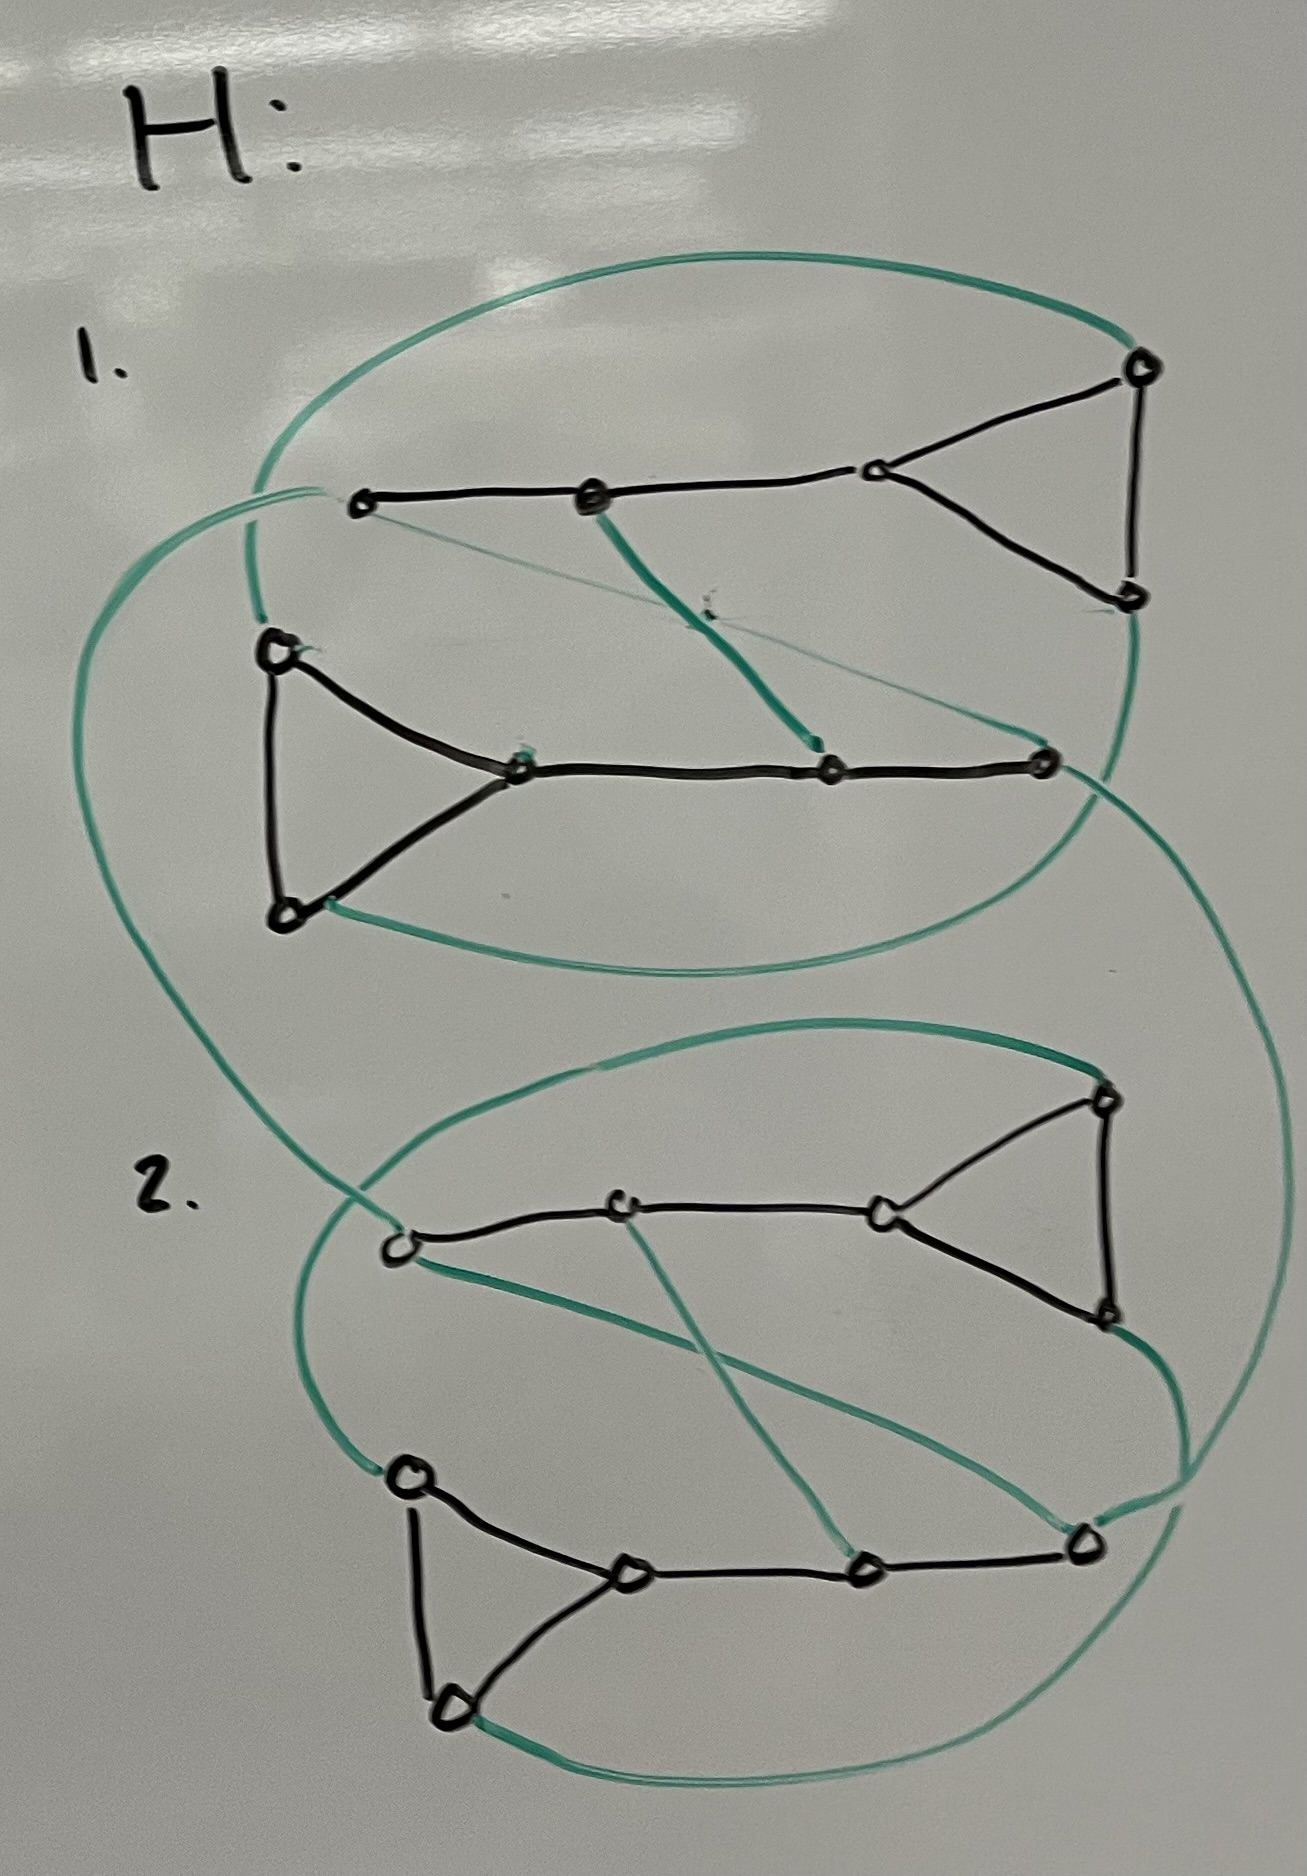 H:
1.
2.